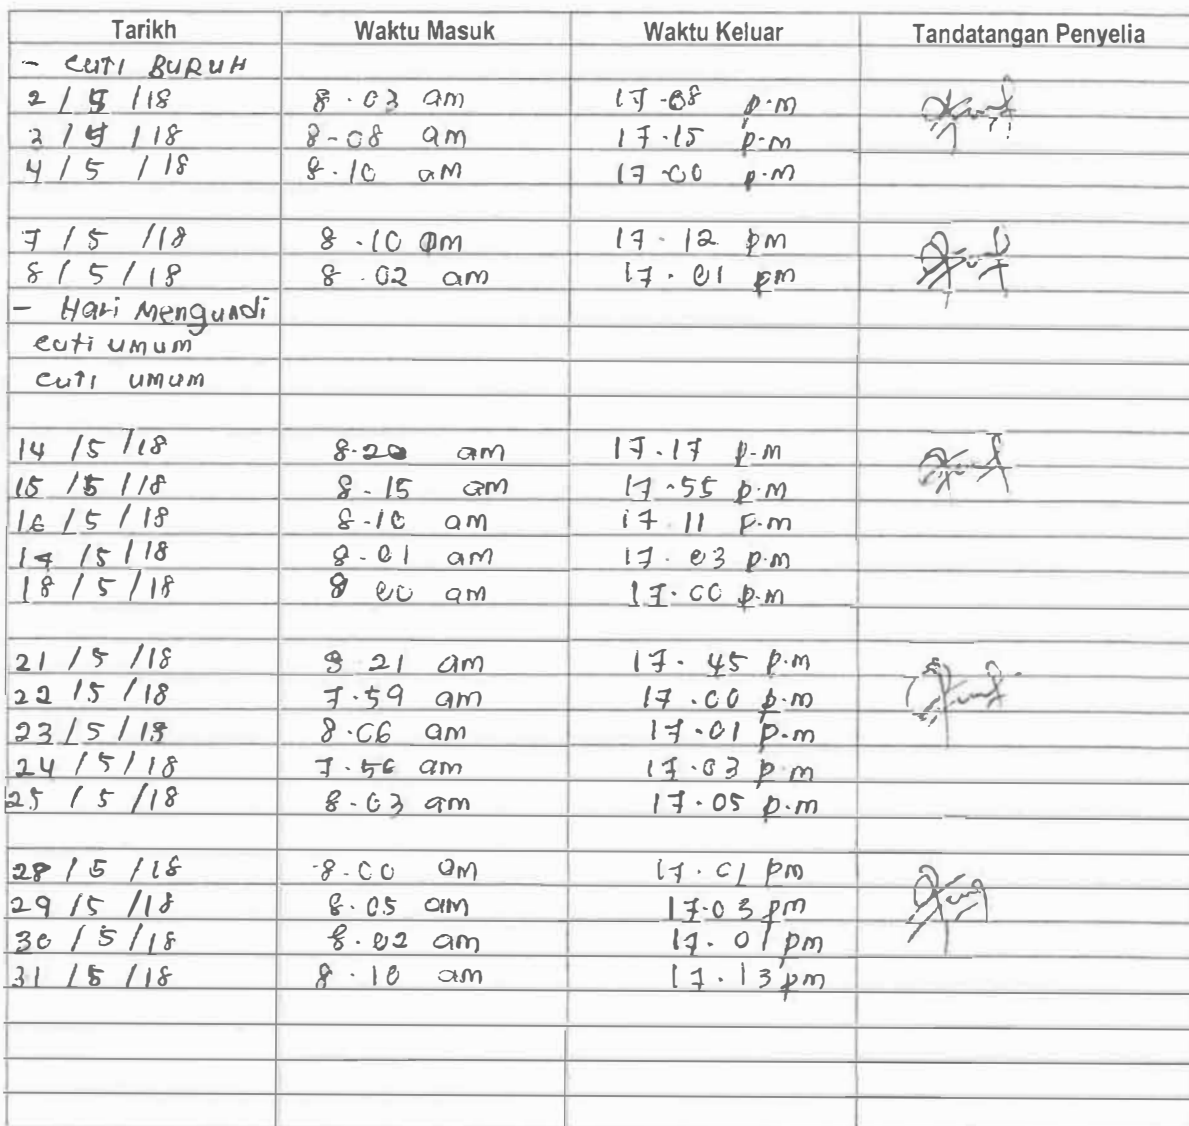 Tarikh Waktu Masuk Waktu Keluar Tandatangan Penyelia
- CUTI BURUH
2 / 5 / 18 8.03 am 17.08 p.m
3 / 5 / 18 8-08 am 17.15 p.m
4 / 5 / 18 8.10 am 17.00 p.m
7 / 5 / 18 8.10 am 17.12 pm
8 / 5 / 18 8.02 am 17.01 pm
- Hari Mengundi
cuti umum
cuti umum
14 / 5 / 18 8.20 am 17.17 p.m
15 / 5 / 18 8.15 am 17.55 p.m
16 / 5 / 18 8.10 am 17 11 p.m
17 / 5 / 18 8.01 am 17.03 p.m
18 / 5 / 18 8 00 am 17.00 p.m
21 / 5 / 18 8 21 am 17.45 p.m
22 / 5 / 18 7.59 am 17.00 p.m
23 / 5 / 18 8.06 am 17.01 p.m
24 / 5 / 18 7.56 am 17.03 p.m
25 / 5 / 18 8.03 am 17.05 p.m
28 / 5 / 18 8.00 am 17.01 pm
29 / 5 / 18 8.05 am 17.03 pm
30 / 5 / 18 8.02 am 17.01 pm
31 / 5 / 18 8.10 am 17.13 pm